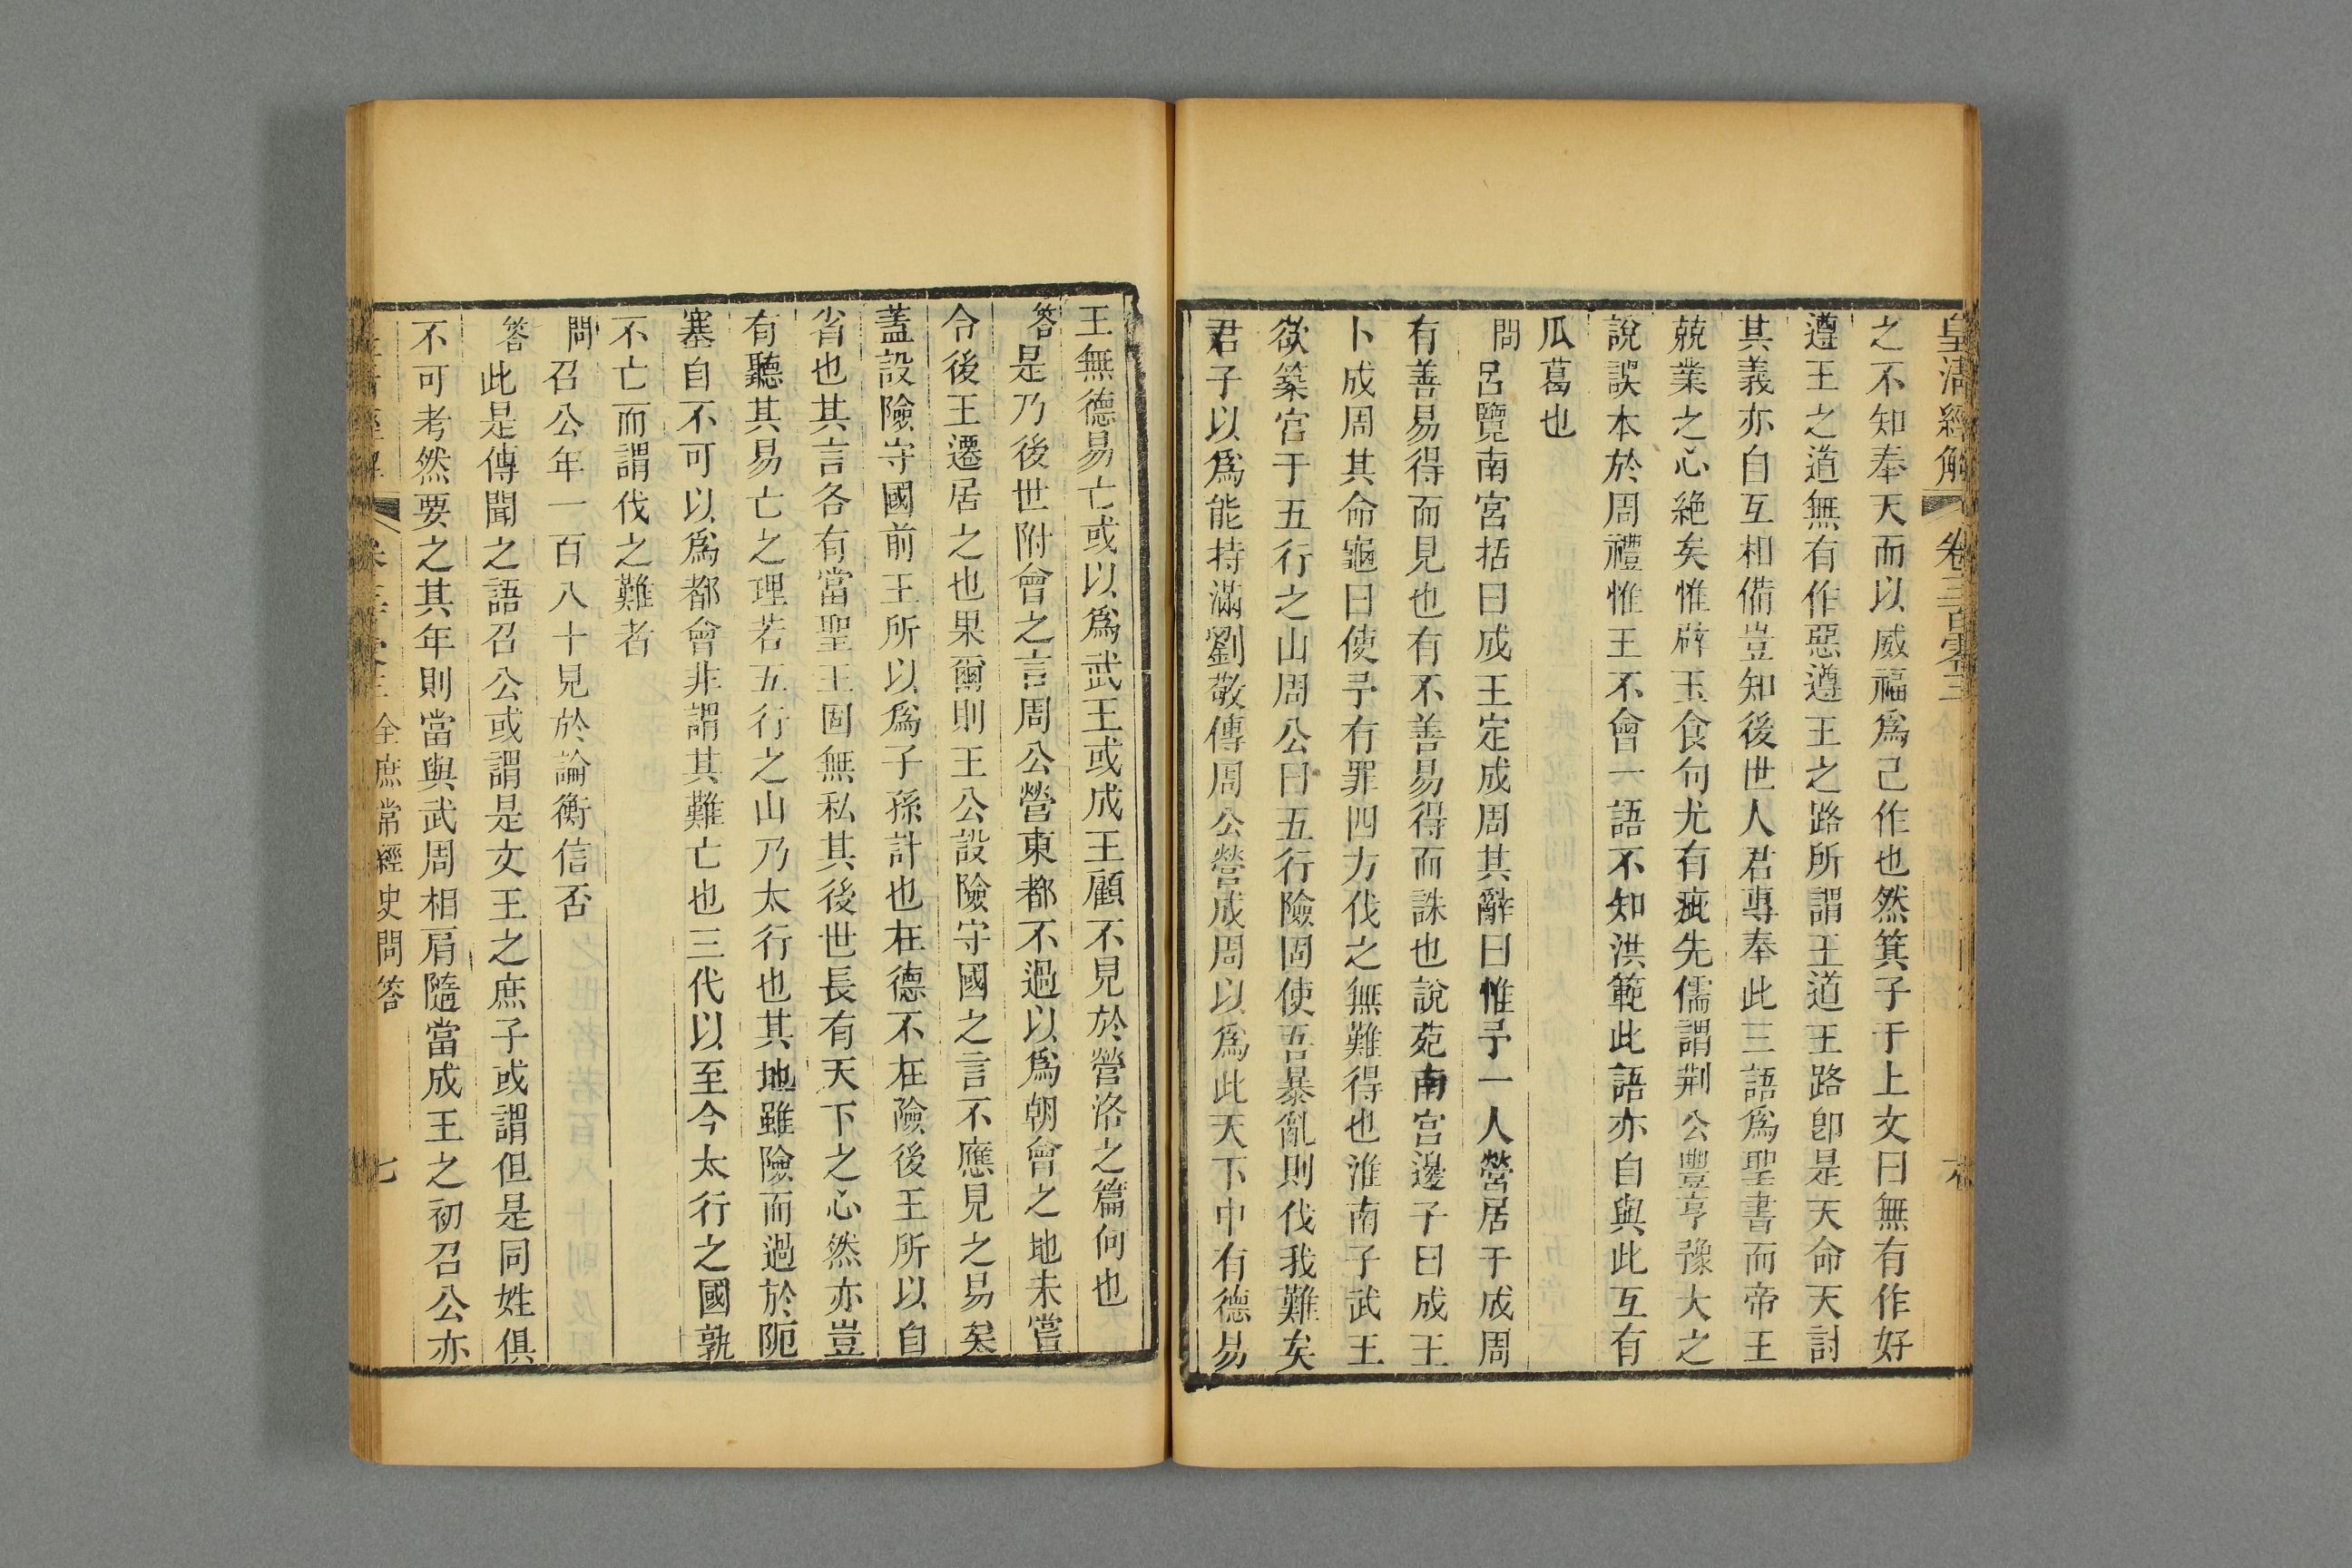 皇清經解 卷三百零三
之不知奉天而以威福爲己作也然箕子于上文曰無有作好
遵王之道無有作惡遵王之路所謂王道王路卽是天命天討
其義亦自互相備豈知後世人君專奉此三語爲聖書而帝王
兢業之心絶矣惟辟玉食句尤有疵先儒謂荆公豐亨豫大之
說誤本於周禮惟王不會一語不知洪範此語亦自與此互有
瓜葛也
問呂覽南宮括曰成王定成周其辭曰惟予一人營居于成周
有善易得而見也有不善易得而誅也說苑南宮邊子曰成王
卜成周其命龜曰使予有罪四方伐之無難得也淮南子武王
欲築宮于五行之山周公曰五行險固使吾暴亂則伐我難矣
君子以爲能持滿劉敬傳周公營成周以爲此天下中有德易
王無德易亡或以爲武王或成王顧不見於營洛之篇何也
答是乃後世附會之言周公營東都不過以爲朝會之地未嘗
令後王遷居之也果爾則王公設險守國之言不應見之易矣
蓋設險守國前王所以爲子孫計也在德不在險後王所以自
省也其言各有當聖王固無私其後世長有天下之心然亦豈
有聽其易亡之理若五行之山乃太行也其地雖險而過於阨
塞自不可以爲都會非謂其難亡也三代以至今太行之國孰
不亡而謂伐之難者
問召公年一百八十見於論衡信否
答此是傳聞之語召公或謂是文王之庶子或謂但是同姓俱
不可考然要之其年則當與武周相肩隨當成王之初召公亦
全庶常經史問答 七